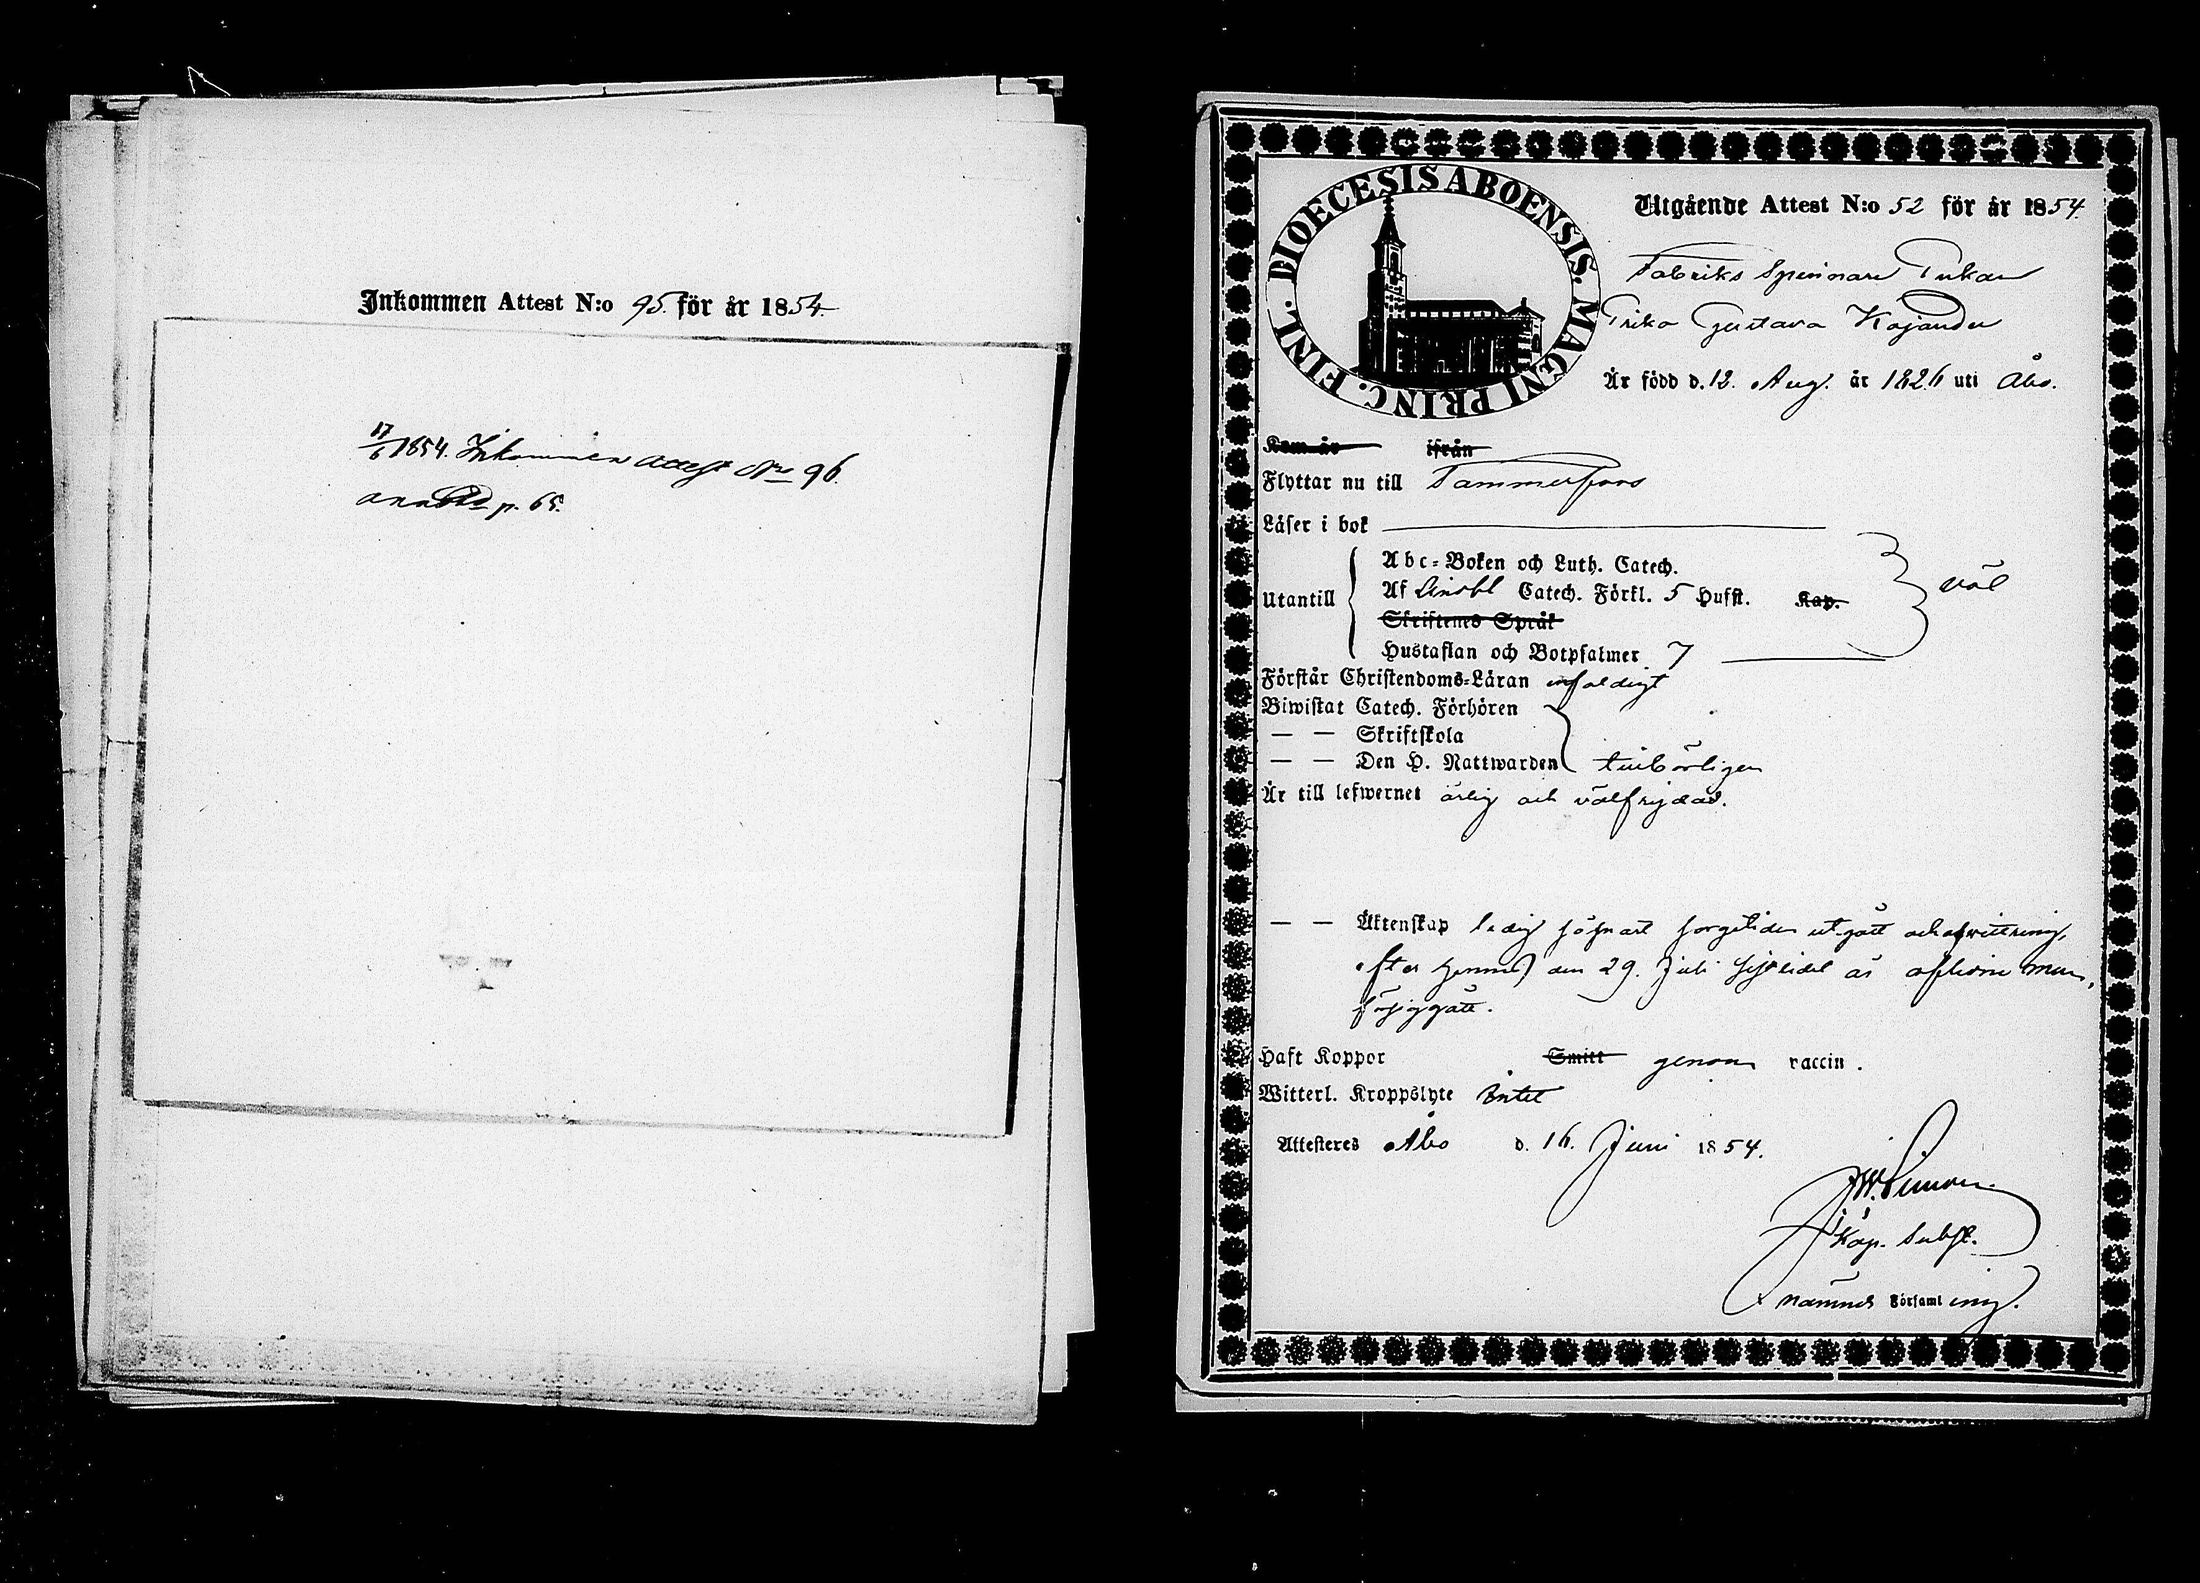 Inkommen Attest N:o 95. för år 1854.
17/6 1854. Inkommen attest Nro 96.
p. 65.
DIOECESIS ABOENSIS. MAGNI PRINC. FINL.
Utgående Attest N:o 52 för år 1854.
Fabriks Spinnare Enkan
Erika Gustava Kajander
Är född d. 12. Aug. år 1826 uti Åbo.
Kom år ifrån
Flyttar nu till Tammerfors
Läser i bok
Abc-Boken och Luth. Catech.
Utantill Af Catech. Förkl. 5 Hufst. Kap. väl
Skriftenes Språk
Hustaflan och Botpsalmer 7
Förstår Christendoms-Läran enfaldigt
Biwistat Catech. Förhören
— — Skriftskola
— — Den H. Nattwarden tillbörligen
Är till lefwernet ärlig och välfrejdad.
— — Äktenskap ledig såsnart sorgetiden utgått och afwittring,
efter hennes den 29. Juli sistlidet år aflidne man,
försiggått.
Haft Koppor Smitt genom vaccin.
Witterl. Kroppslyte Intet
Attesteres Åbo d. 16. Juni 1854.
Kap. Subst.
nämnde Församling.